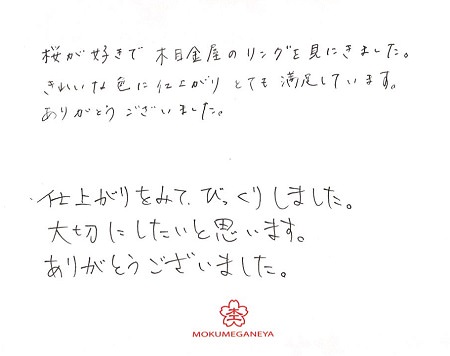 桜が好きで 木目金屋のリングを見にきました。
きれいな色に仕上がり とても 満足しています。
ありがとうございました。
仕上がりをみて、びっくりしました。
大切にしたいと思います。
ありがとうございました。
MOKUMEGANEYA